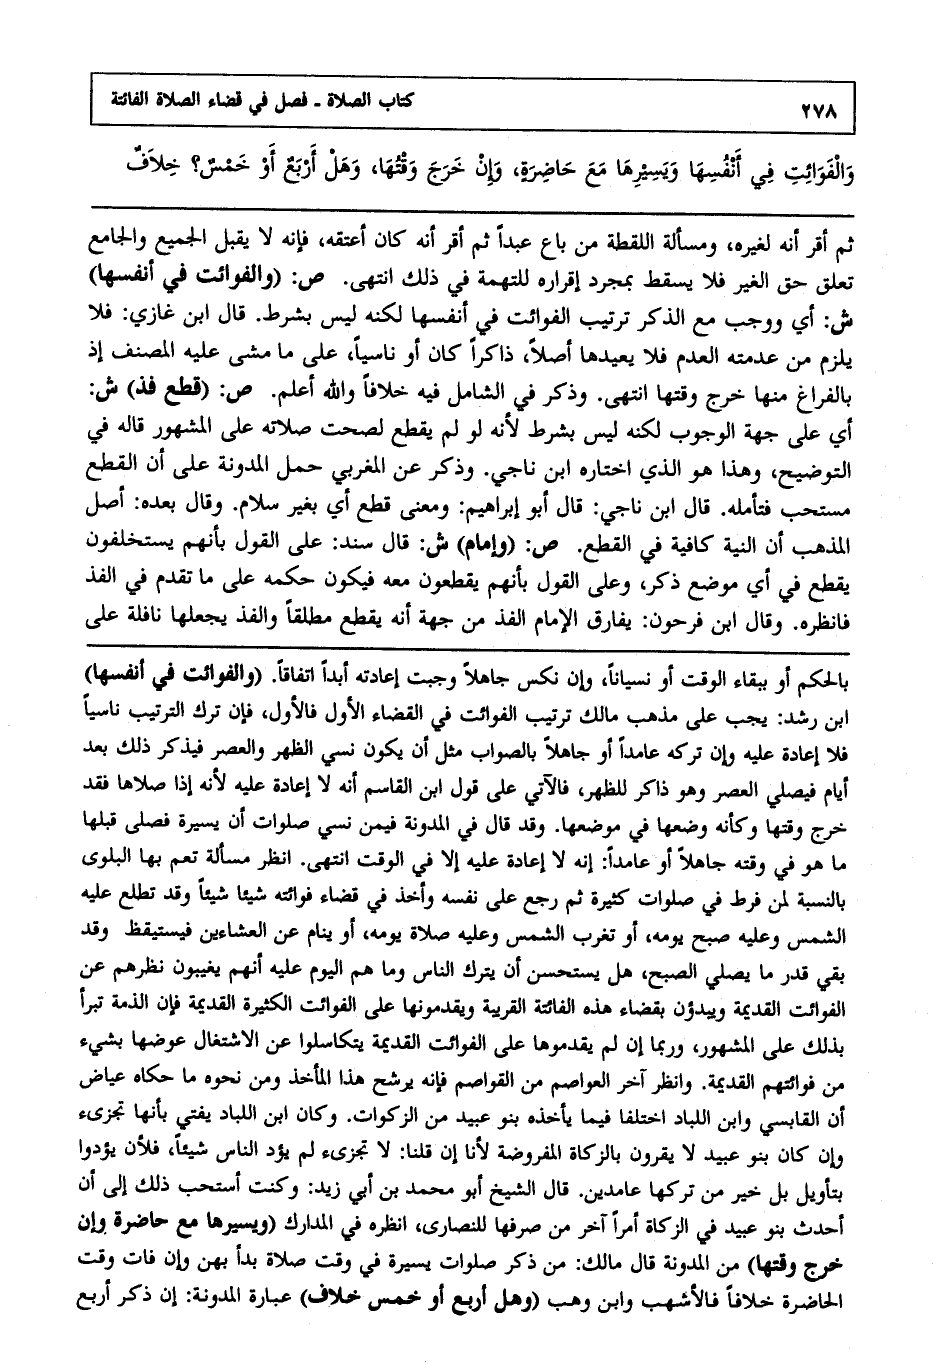 ٢٧٨
كتاب الصلاة ـ فصل في قضاء الصلاة الفائتة
وَالْفَوَائِتِ فِي أَنْفُسِهَا وَيَسِيْرِهَا مَعَ حَاضِرَةٍ، وَإِنْ خَرَجَ وَقْتُهَا، وَهَلْ أَرْبَعٌ أَوْ خَمْسٌ؟ خِلاَفٌ
ثم أقر أنه لغيره، ومسألة اللقطة من باع عبداً ثم أقر أنه كان أعتقه، فإنه لا يقبل الجميع والجامع
تعلق حق الغير فلا يسقط بمجرد إقراره للتهمة في ذلك انتهى. ص: (والفوائت في أنفسها)
ش: أي ووجب مع الذكر ترتيب الفوائت في أنفسها لكنه ليس بشرط. قال ابن غازي: فلا
يلزم من عدمته العدم فلا يعيدها أصلاً، ذاكراً كان أو ناسياً، على ما مشى عليه المصنف إذ
بالفراغ منها خرج وقتها انتهى. وذكر في الشامل فيه خلافاً والله أعلم. ص: (قطع فذ) ش:
أي على جهة الوجوب لكنه ليس بشرط لأنه لو لم يقطع لصحت صلاته على المشهور قاله في
التوضيح، وهذا هو الذي اختاره ابن ناجي. وذكر عن المغربي حمل المدونة على أن القطع
مستحب فتأمله. قال ابن ناجي: قال أبو إبراهيم: ومعنى قطع أي بغير سلام. وقال بعده: أصل
المذهب أن النية كافية في القطع. ص: (وإمام) ش: قال سند: على القول بأنهم يستخلفون
يقطع في أي موضع ذكر، وعلى القول بأنهم يقطعون معه فيكون حكمه على ما تقدم في الفذ
فانظره. وقال ابن فرحون: يفارق الإمام الفذ من جهة أنه يقطع مطلقاً والفذ يجعلها نافلة على
بالحكم أو ببقاء الوقت أو نسياناً، وإن نكس جاهلاً وجبت إعادته أبداً اتفاقاً. (والفوائت في أنفسها)
ابن رشد: يجب على مذهب مالك ترتيب الفوائت في القضاء الأول فالأول، فإن ترك الترتيب ناسياً
فلا إعادة عليه وإن تركه عامداً أو جاهلاً بالصواب مثل أن يكون نسي الظهر والعصر فيذكر ذلك بعد
أيام فيصلي العصر وهو ذاكر للظهر، فالآتي على قول ابن القاسم أنه لا إعادة عليه لأنه إذا صلاها فقد
خرج وقتها وكأنه وضعها في موضعها. وقد قال في المدونة فيمن نسي صلوات أن يسيرة فصلى قبلها
ما هو في وقته جاهلاً أو عامداً: إنه لا إعادة عليه إلا في الوقت انتهى. انظر مسألة تعم بها البلوى
بالنسبة لمن فرط في صلوات كثيرة ثم رجع على نفسه وأخذ في قضاء فوائته شيئا شيئاً وقد تطلع عليه
الشمس وعليه صبح يومه، أو تغرب الشمس وعليه صلاة يومه، أو ينام عن العشاءين فيستيقظ وقد
بقي قدر ما يصلي الصبح، هل يستحسن أن يترك الناس وما هم اليوم عليه أنهم يغيبون نظرهم عن
الفوائت القديمة ويبدؤن بقضاء هذه الفائتة القريبة ويقدمونها على الفوائت الكثيرة القديمة فإن الذمة تبرأ
بذلك على المشهور، وربما إن لم يقدموها على الفوائت القديمة يتكاسلوا عن الاشتغال عوضها بشيء
من فوائتهم القديمة. وانظر آخر العواصم من القواصم فإنه يرشح هذا المأخذ ومن نحوه ما حكاه عياض
أن القابسي وابن اللباد اختلفا فيما يأخذه بنو عبيد من الزكوات. وكان ابن اللباد يفتي بأنها تجزىء
وإن كان بنو عبيد لا يقرون بالزكاة المفروضة لأنا إن قلنا: لا تجزىء لم يؤد الناس شيئاً، فلأن يؤدوا
بتأويل بل خير من تركها عامدين. قال الشيخ أبو محمد بن أبي زيد: وكنت أستحب ذلك إلى أن
أحدث بنو عبيد في الزكاة أمراً آخر من صرفها للنصارى، انظره في المدارك (ويسيرها مع حاضرة وإن
خرج وقتها) من المدونة قال مالك: من ذكر صلوات يسيرة في وقت صلاة بدأ بهن وإن فات وقت
الحاضرة خلافاً فالأشهب وابن وهب (وهل أربع أو خمس خلاف) عبارة المدونة: إن ذكر أربع